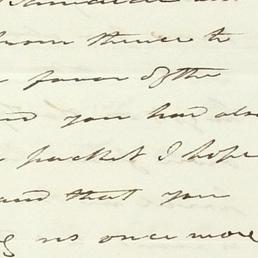 from thence to
favor of the
and you had also
packet I hope
and that you
us once more